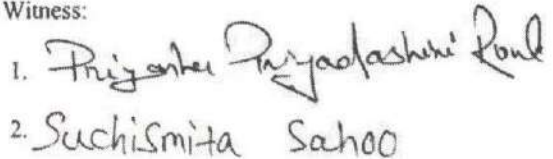 Witness:
1. Priyanka Priyadashini Rout
2. Suchismita Sahoo